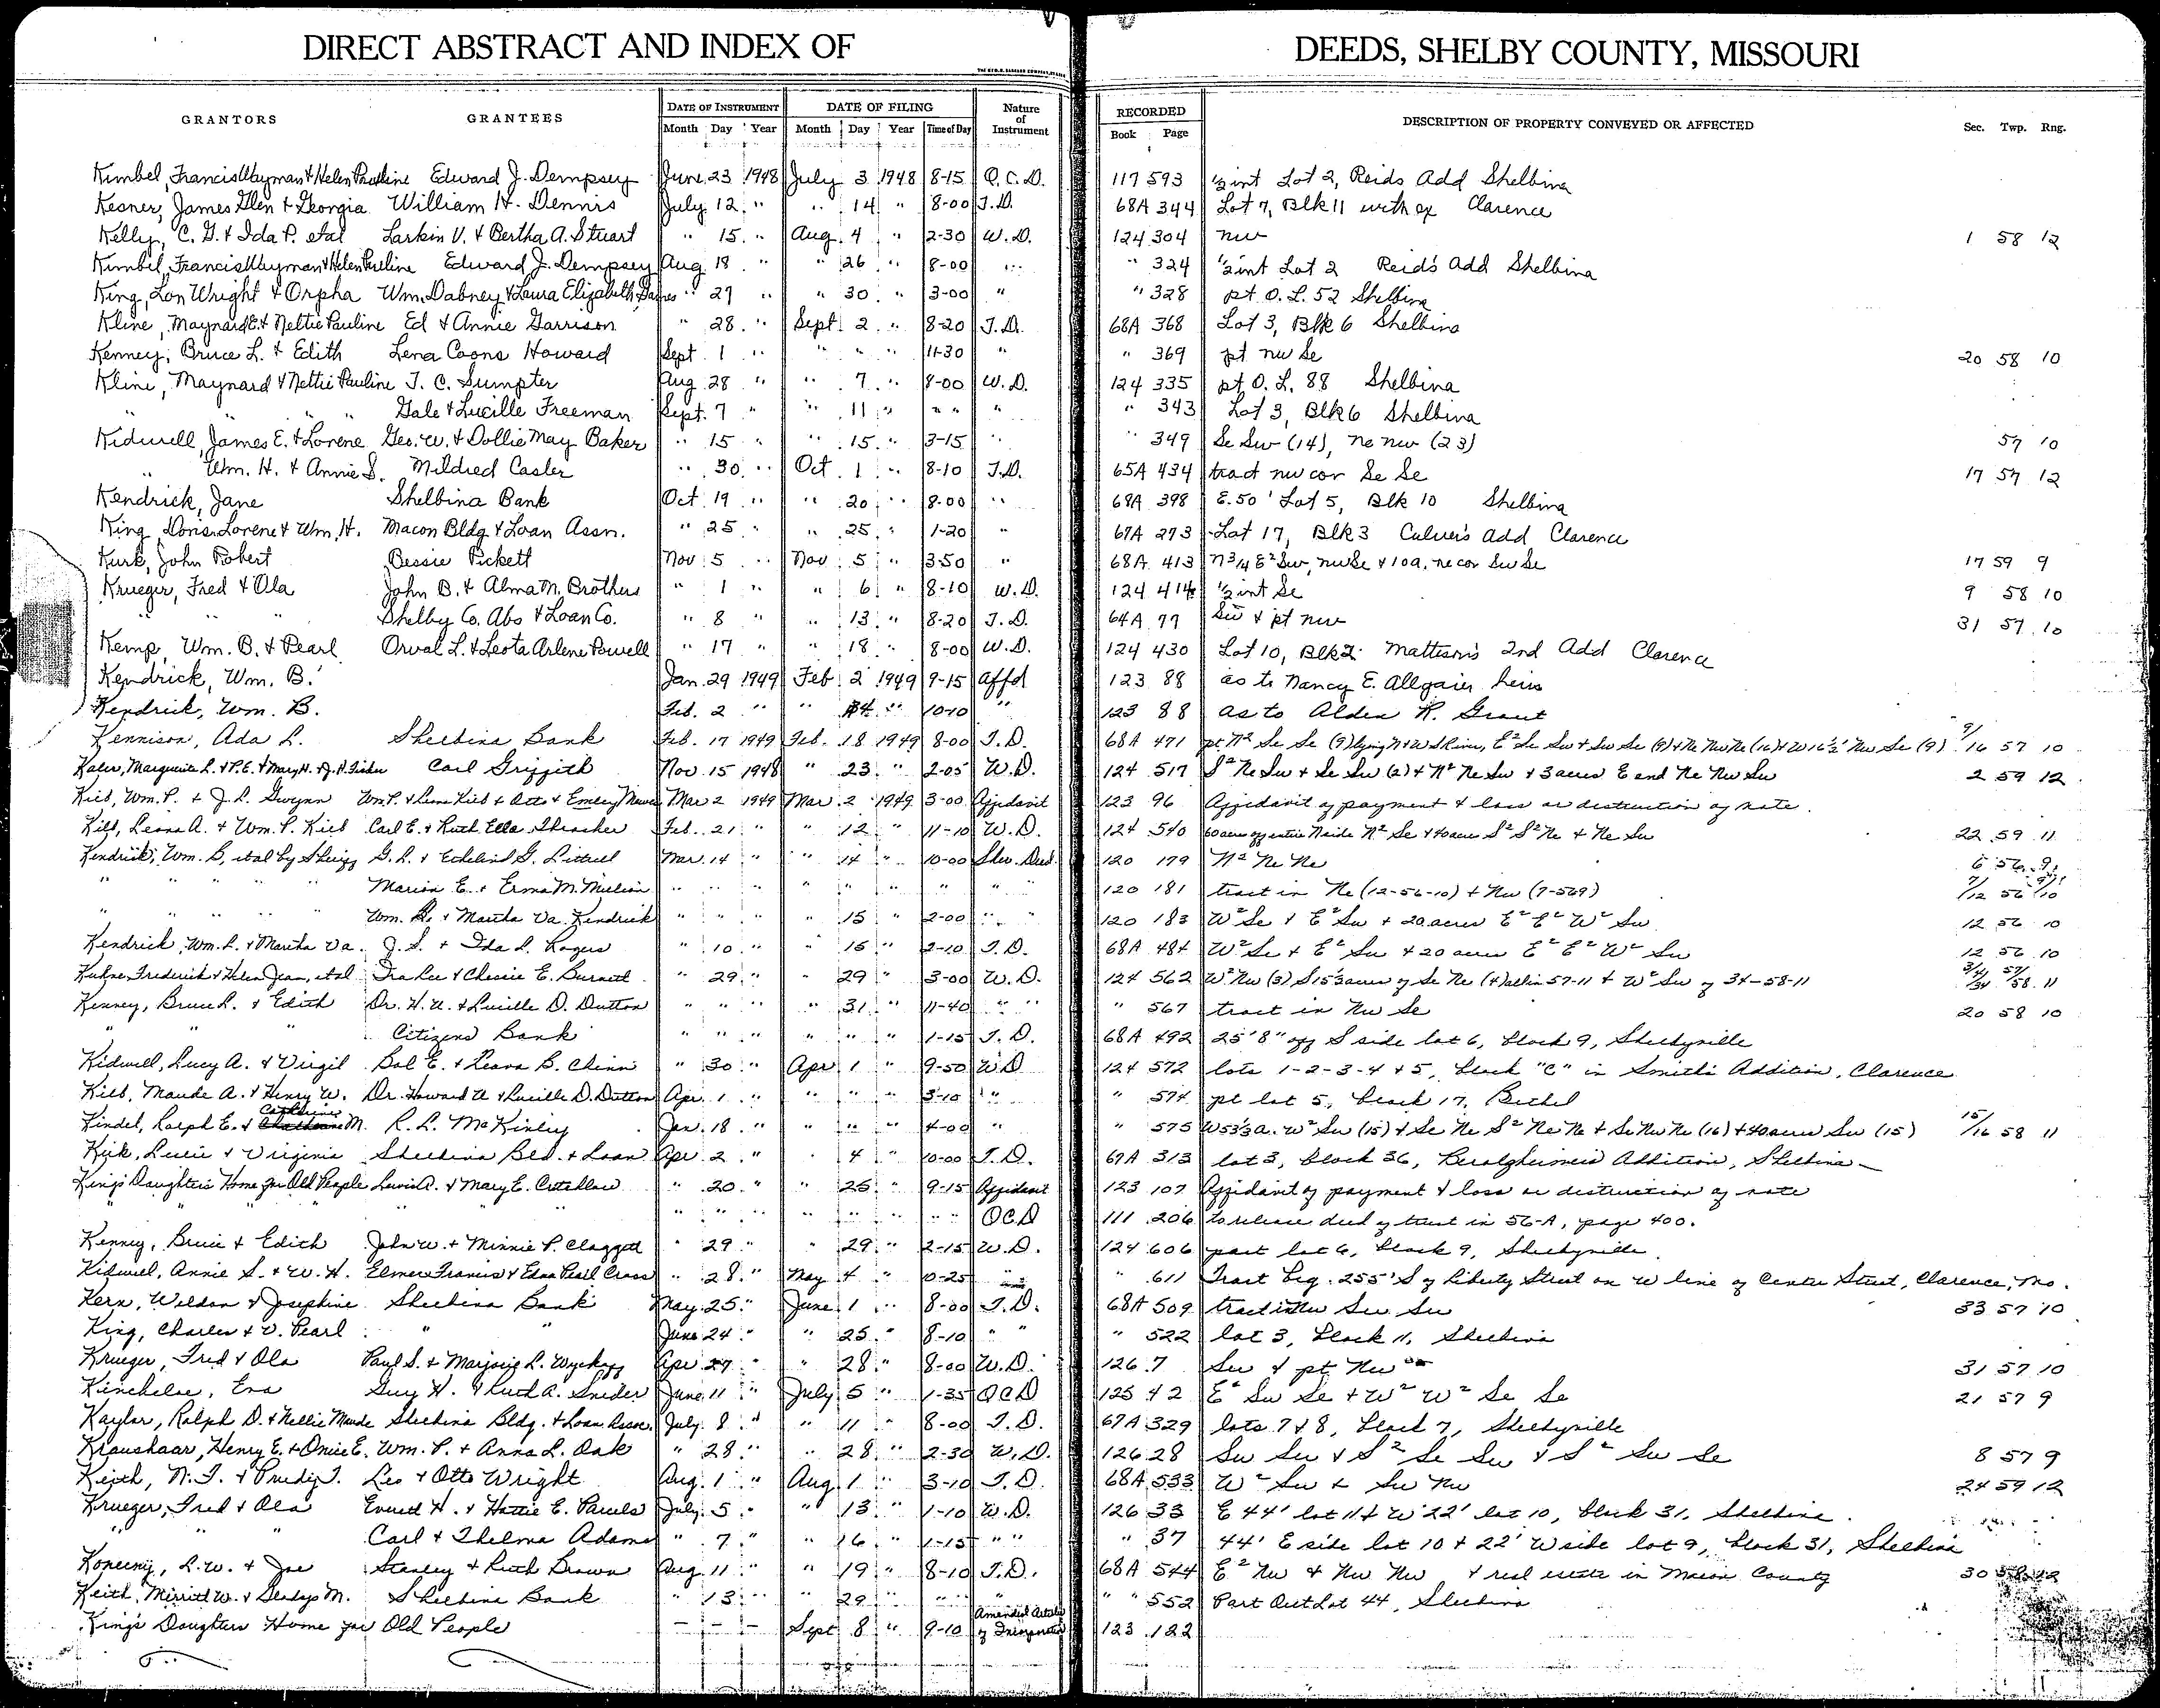 DIRECT ABSTRACT AND INDEX OF DEEDS, SHELBY COUNTY, MISSOURI
GRANTORS GRANTEES DATE OF INSTRUMENT DATE OF FILING Nature of Instrument RECORDED DESCRIPTION OF PROPERTY CONVEYED OR AFFECTED Sec. Twp. Rng.
Month Day Year Month Day Year Time of Day Book Page
Kimbel, Francis Wayman & Helen Pauline Edward J. Dempsey June 23 1948 July 3 1948 8-15 Q.C.D. 117 593 ½ int Lot 2, Reids Add Shelbina
Kesner, James Glen & Georgia William H. Dennis July 12 " " 14 " 8-00 T.D. 68A 344 Lot 7, Blk 11 with ex Clarence
Kelly, C. G. & Ida P. etal Larkin V. & Bertha A. Stuart " 15 " Aug. 4 " 2-30 W.D. 124 304 nw 1 58 12
Kimbel, Francis Wayman & Helen Pauline Edward J. Dempsey Aug 18 " " 26 " 8-00 " 324 ½ int Lot 2 Reid's Add Shelbina
King, Lon Wright & Orpha Wm. Dabney & Laura Elizabeth " 27 " " 30 " 3-00 " " 328 pt O.L. 52 Shelbina
Kline, Maynard E. & Nettie Pauline Ed & Annie Garrison " 28 " Sept 2 " 8-20 T.D. 68A 368 Lot 3, Blk 6 Shelbina
Kenney, Bruce L. & Edith Lena Coons Howard Sept 1 " " " " 11-30 " " 369 pt nw se 20 58 10
Kline, Maynard & Nettie Pauline T. C. Sumpter Aug 28 " " 7 " 8-00 W.D. 124 335 pt O.L. 88 Shelbina
" " " Gale & Lucille Freeman Sept. 7 " " 11 " " " " " 343 Lot 3, Blk 6 Shelbina
Kidwell, James E. & Lorene Geo. W. & Dollie May Baker " 15 " " 15 " 3-15 " " 349 Se Sw (14), ne nw (23) 57 10
" Wm. H. & Annie S. Mildred Casler " 30 " Oct 1 " 8-10 T.D. 65A 434 tract nw cor Se Se 17 57 12
Kendrick, Jane Shelbina Bank Oct 19 " " 20 " 8-00 " 68A 398 E. 50' Lot 5, Blk 10 Shelbina
King, Doris Lorene & Wm. H. Macon Bldg & Loan Assn. " 25 " " 25 " 1-20 " 67A 273 Lot 17, Blk 3 Culver's Add Clarence
Kirk, John Robert Bessie Pickett Nov 5 " Nov 5 " 3-50 " 68A 413 n 3/4 E² Sw, nw Se & 10a. ne cor Sw Se 17 59 9
Krueger, Fred & Ola John B. & Alma M. Brothers " 1 " " 6 " 8-10 W.D. 124 414 ½ int Se 9 58 10
" " Shelby Co. Abs & Loan Co. " 8 " " 13 " 8-20 T.D. 64A 77 Sw & pt nw 31 57 10
Kemp, Wm. B. & Pearl Orval L. & Leota Arlene Powell " 17 " " 18 " 8-00 W.D. 124 430 Lot 10, Blk 2 Mattison's 2nd Add Clarence
Kendrick, Wm. B. Jan. 29 1949 Feb 2 1949 9-15 Affd 123 88 as to Nancy E. Allgaier heirs
Kendrick, Wm. B. Feb. 2 " " 4 " 10-10 " 123 88 as to Alden R. Grant
Kennison, Ada L. Shelbina Bank Feb. 17 1949 Feb. 18 1949 8-00 T.D. 68A 471 pt N² Se Se (9) lying N & W S River, E² Se Sw & Sw Se (9) & Ne Nw Ne (16) & W 16½' Nw Se (9) 9/16 57 10
Kaler, Marguerite L. & P.E. & Mary H. & J. H. Carl Griffith Nov 15 1948 " 23 " 2-05 W.D. 124 517 S² Ne Sw & Se Sw (2) & N² Ne Sw & 3 acres E end Ne Nw Sw 2 59 12
Kieb, Wm. P. & J. L. Gwynn Wm. P. & Leona Kieb & Otto & Emley Mar 2 1949 Mar. 2 1949 3-00 Affidavit 123 96 Affidavit of payment & loss or destruction of note.
Leona A. & Wm. P. Kieb Carl E. & Ruth Ella Thrasher Feb. 21 " " 12 " 11-10 W.D. 124 540 60 acres off entire N side N² Se & 40 acres S² S² Ne & Ne Sw 22 59 11
Kendrick, Wm. B, etal by Sheriff G. L. & Ethelind G. Littrell Mar. 14 " " 14 " 10-00 Shr. Deed 120 179 N² Ne Ne 6 56 9
" " " " Marion E. & Erma M. Million " " " " " " " " 120 181 tract in Ne (12-56-10) & Nw (7-569) 7/12 56 9/10
" " " " Wm. L. & Martha Va. Kendrick " " " " 15 " 2-00 " 120 183 W² Se & E² Sw & 20 acres E² E² W² Sw 12 56 10
Kendrick, Wm. L. & Martha Va. J. S. & Ida L. Rogers " 10 " " 15 " 2-10 T.D. 68A 484 W² Se & E² Sw & 20 acres E² E² W² Sw 12 56 10
Kuhne, Frederick & Helen Jean, etal Ira Lee & Chessie E. Burnett " 29 " " 29 " 3-00 W.D. 124 562 W² Nw (3) S 15⅓ acres of Se Ne (4) all in 57-11 & W² Sw of 34-58-11 3/4/34 57/58 11
Kenney, Bruce L. & Edith Dr. H. U. & Lucille D. Dutton " " " " 31 " 11-40 " " " 567 tract in Nw Se 20 58 10
" " " Citizens Bank " " " " " " 1-15 T.D. 68A 492 25'8" off S side lot 6, block 9, Shelbyville
Kidwell, Lucy A. & Virgil Bal E. & Leora B. Chinn " 30 " Apr 1 " 9-50 W.D 124 572 lots 1-2-3-4 & 5, block "C" in Smith's Addition, Clarence
Kieb, Maude A. & Henry W. Dr. Howard U & Lucille D. Dutton Apr. 1 " " " " 3-10 " " 574 pt lot 5, block 17, Bethel
Kindel, Ralph E. & Catherine M. R. L. McKinley Jan. 18 " " " " 4-00 " " 575 W 53⅓a. W² Sw (15) & Se Ne S² Ne Ne & Se Nw Ne (16) & 40 acres Sw (15) 15/16 58 11
Kirk, & Virginia Shelbina Bld. & Loan Apr. 2 " " 4 " 10-00 T.D. 67A 313 lot 3, block 36, Addition, Shelbina
King's Daughters Home for Old People Lewis A. & Mary E. " 20 " " 25 " 9-15 Affidavit 123 107 Affidavit of payment & loss or destruction of note
" " " " " " " " " " QCD 111 206 to release deed of trust in 56-A, page 400.
Kenney, Bruce & Edith John W. & Minnie P. Claggett " 29 " " 29 " 2-15 W.D. 124 606 part lot 6, block 9, Shelbyville.
Kidwell, Annie S. & W. H. Elmer Francis & Edna Pearl Cross " 28 " May 4 " 10-25 " " 611 Tract beg. 255' S of Liberty Street on W line of Center Street, Clarence, Mo.
Kern, Weldon & Josephine Shelbina Bank May 25 " June 1 " 8-00 T.D. 68A 509 tract in Nw Sw Sw 33 57 10
King, Charles & V. Pearl " " June 24 " " 25 " 8-10 " " " 522 lot 3, block 11, Shelbina
Krueger, Fred & Ola Paul S. & Marjorie L. Wyckoff Apr 27 " " 28 " 8-00 W.D. 126 7 Sw & pt Nw 31 57 10
Kincheloe, Era Guy H. & Ruth A. Snider June 11 " July 5 " 1-35 QCD 125 42 E² Sw Se & W² W² Se Se 21 57 9
Kaylor, Ralph D. & Nellie Maude Shelbina Bldg. & Loan Assoc. July 8 " " 11 " 8-00 T.D. 67A 329 lots 7 & 8, block 7, Shelbyville
Kraushaar, Henry E. & Onice E. Wm. P. & Anna L. Oak " 28 " " 28 " 2-30 W.D. 126 28 Sw Sw & S² Se Sw & S² Sw Se 8 57 9
Keith, N. T. & Leo & Otto Wright Aug. 1 " Aug. 1 " 3-10 T.D. 68A 533 W² Sw & Sw Nw 24 59 12
Krueger, Fred & Ola Everett H. & Hattie E. Parcels July 5 " " 13 " 1-10 W.D. 126 33 E 44' lot 11 & W 22' lot 10, block 31, Shelbina.
" " " Carl & Thelma Adams " 7 " " 16 " 1-15 " " " 37 44' E side lot 10 & 22' W side lot 9, block 31, Shelbina
Konecny, L. W. & Joe Stanley & Ruth Brown Aug. 11 " " 19 " 8-10 T.D. 68A 544 E² Nw & Nw Nw & real estate in Macon County 30
Keith, Merritt W. & Gladys M. Shelbina Bank " 13 " " 29 " " " " " 552 Part Out Lot 44, Shelbina
King's Daughters Home for Old People - - - Sept 8 " 9-10 Amended Articles of Incorporation 123 122